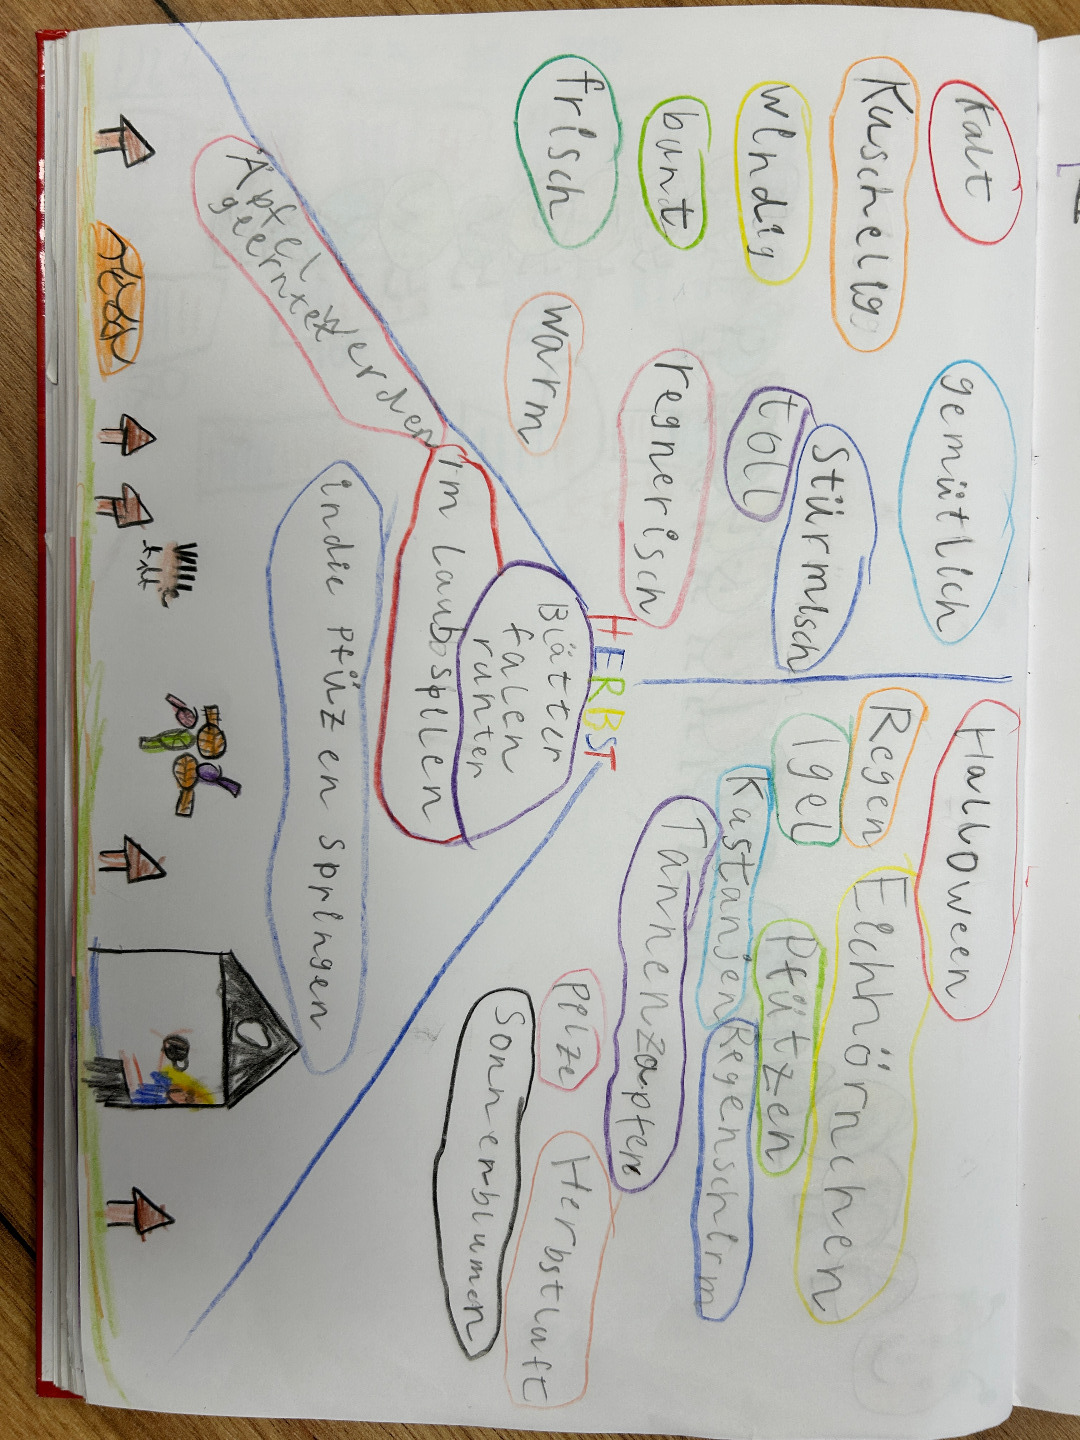 kalt
gemütlich
Kuschelig
Windig
stürmisch
toll
bunt
regnerisch
frisch
warm
Halloween
Regen
Eichhörnchen
Igel
Pfützen
Kastanjen
Regenschirm
Tannenzapfen
Pelze
Herbstluft
Sonnenblumen
HERBST
Blätter
falen
runter
im Laub spilen
Äpfel werden
geerntet
in die Pfüzen springen